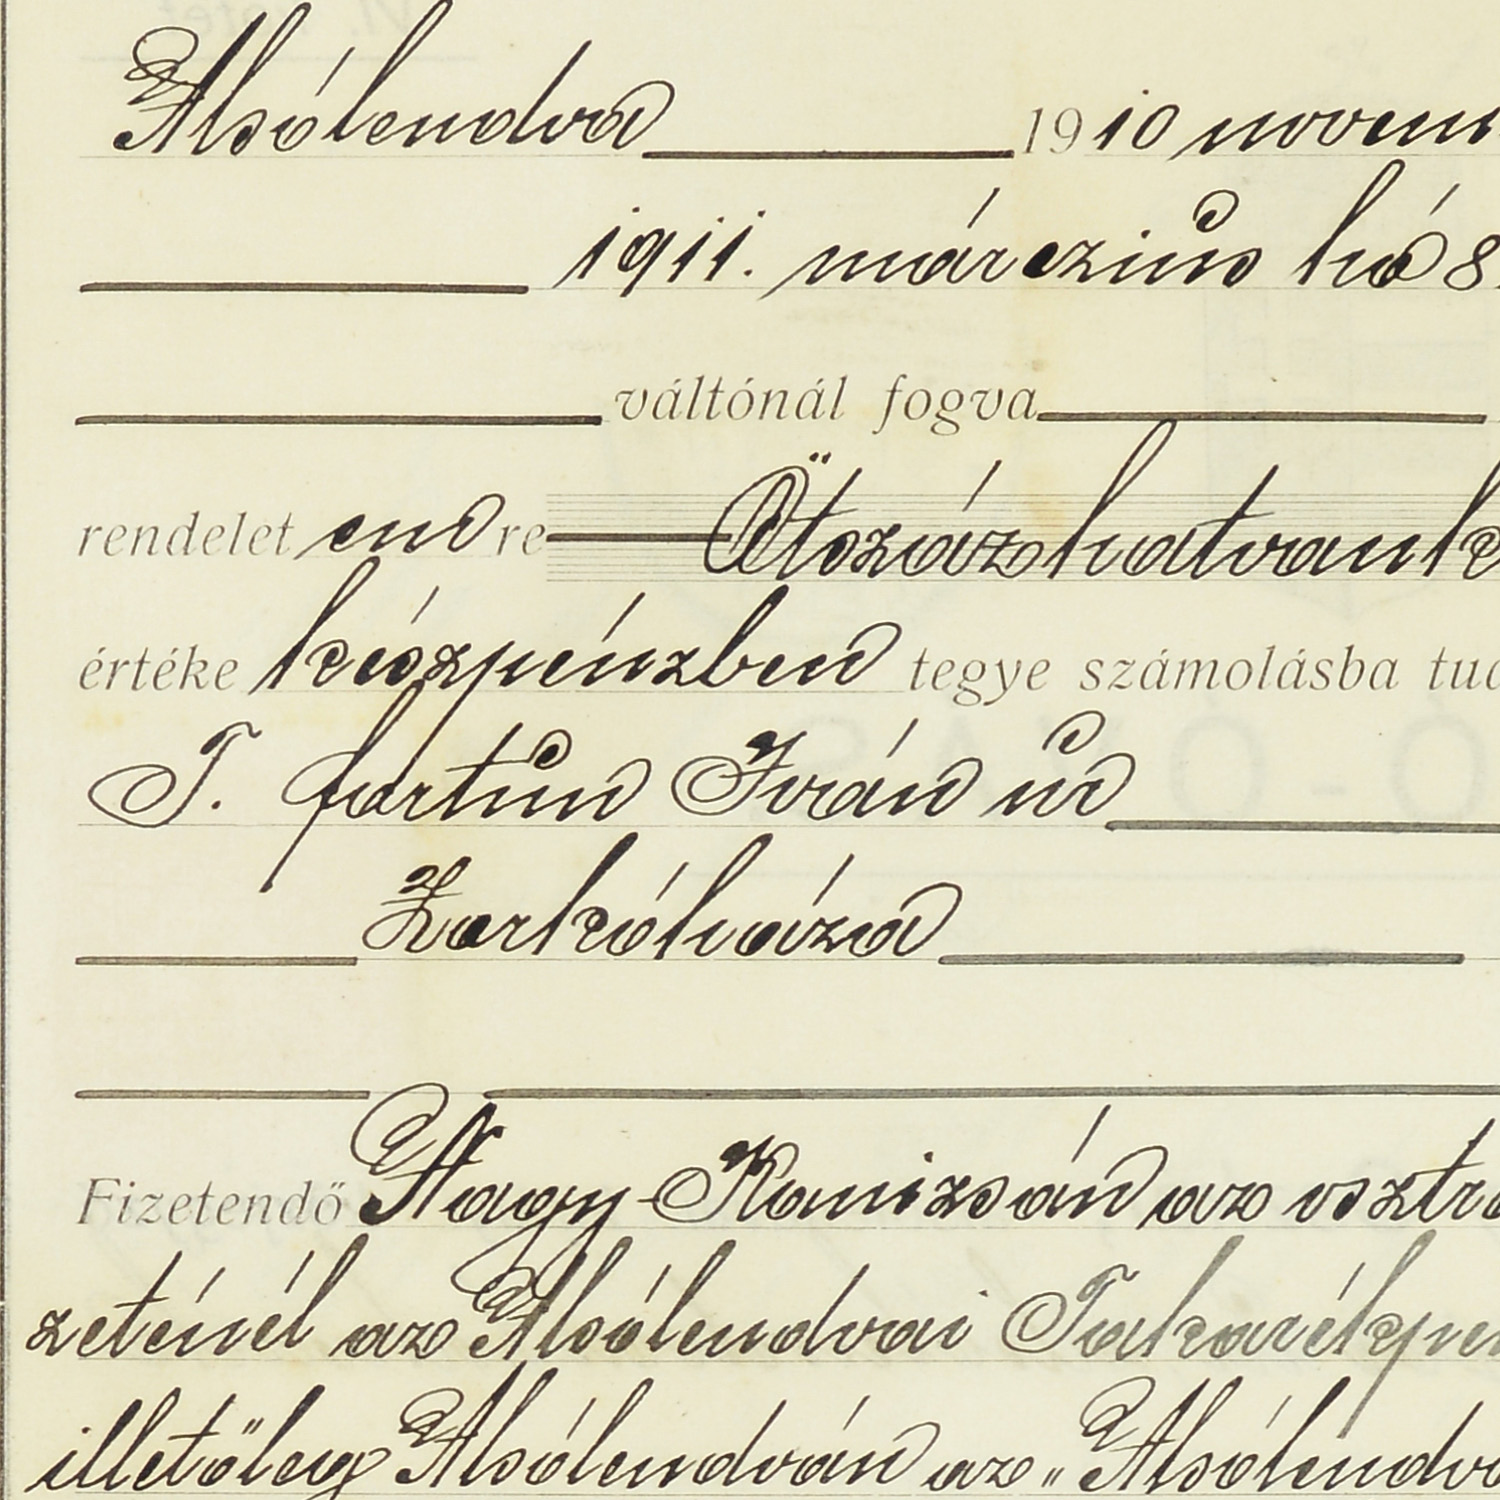 Alsólendva 1910 novem
1911. márczius hó 8.
váltónál fogva
rendelet en re Ötszázhatvank
értéke készpénzben tegye számolásba tud
T. fartun Iván úr
Zarkóháza
Fizetendő Nagy-Kanizsán az osztrá
zeténél az Alsólendvai Takarékpén
illetőleg Alsólendván az „Alsólendva